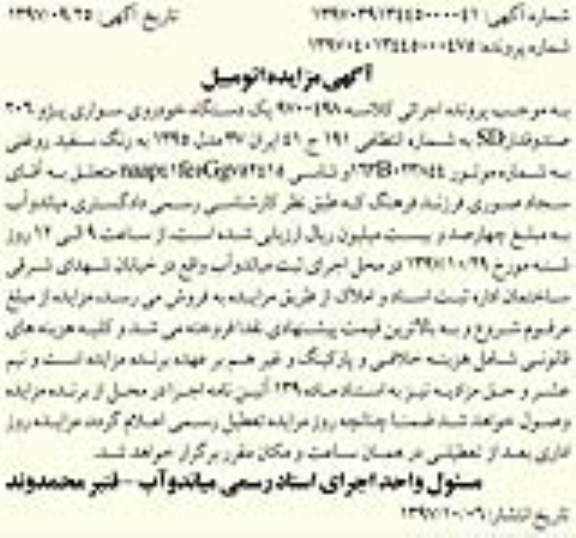 شماره آگهی: ۱۳۹۷۰۳۹۱۳۴۴۵۰۰۰۰۴۱ تاریخ آگهی: ۱۳۹۷/۰۹/۲۵
شماره پرونده: ۱۳۹۷۰۴۰۱۳۴۴۵۰۰۰۴۷۵
آگهی مزایده اتومبیل
به موجب پرونده اجرائی کلاسه ۹۷۰۰۴۹۸ یک دستگاه خودروی سواری پژو ۲۰۶
صندوقدار SD به شماره انتظامی ۱۹۱ ج ۵۱ ایران ۲۷ مدل ۱۳۹۵ به رنگ سفید روغنی
به شماره موتور و شاسی متعلق به آقای
سجاد صبوری فرزند فرهنگ که طبق نظر کارشناس رسمی دادگستری میاندوآب
به مبلغ چهارصد و بیست میلیون ریال ارزیابی شده است، از ساعت ۹ الی ۱۲ روز
شنبه مورخ ۱۳۹۷/۱۰/۲۹ در محل اجرای ثبت میاندوآب واقع در خیابان شهدای شرقی
ساختمان اداره ثبت اسناد و املاک از طریق مزایده به فروش می رسد، مزایده از مبلغ
مرقوم شروع و به بالاترین قیمت پیشنهادی نقدا فروخته می شد و کلیه هزینه های
قانونی شامل هزینه خلافی و پارکینگ و غیر هم بر عهده برنده مزایده است و نیم
عشر و حق مزایده نیز به استناد ماده ۱۳۹ آئین نامه اجرا در محل از برنده مزایده
وصول خواهد شد ضمنا چنانچه روز مزایده تعطیل رسمی اعلام گردد مزایده روز
اداری بعد از تعطیلی در همان ساعت و مکان مقرر برگزار خواهد شد.
مسئول واحد اجرای اسناد رسمی میاندوآب - قنبر محمدوند
تاریخ انتشار: ۱۳۹۷/۱۰/۰۶